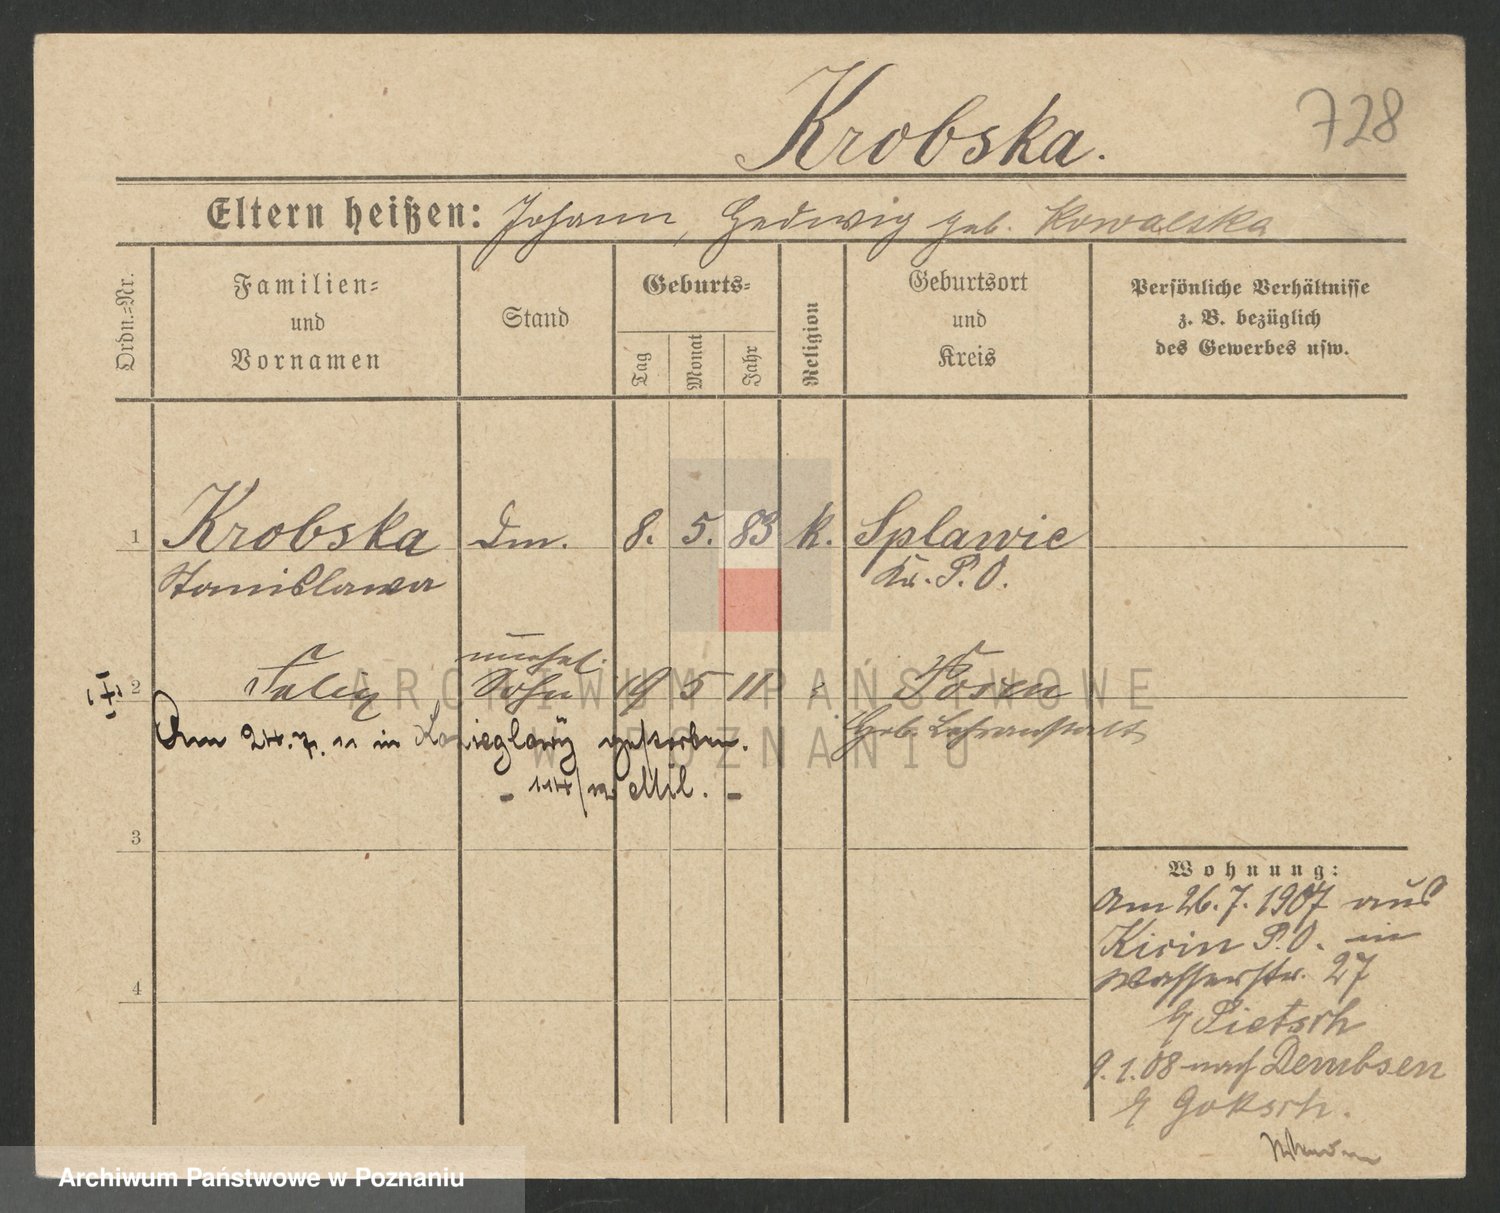 Krobska.
728
Eltern heißen: Johann, Hedwig geb. Kowalska
Ordn.=Nr.
Familien=
und
Vornamen
Stand
Geburts=
Tag
Monat
Jahr
Religion
Geburtsort
und
Kreis
Persönliche Verhältnisse
z. B. bezüglich
des Gewerbes usw.
1 Krobska Dm. 8. 5. 83 k. Splawie
Stanislawa Kr. P. O.
unehel.
2 Felix Sohn 19 5 11 Posen
Geb. Lehranstalt
Am 24. 7. 11 in Kozieglowy gestorben.
- 114/12 Mil. -
3
4
Wohnung:
Am 26. 7. 1907 aus
Kicin P. O. in
Wasserstr. 27
b/ Pietsch
9. 1. 08 nach Dembsen
b/ Goksch.
ARCHIWUM PAŃSTWOWE
W POZNANIU
Archiwum Państwowe w Poznaniu